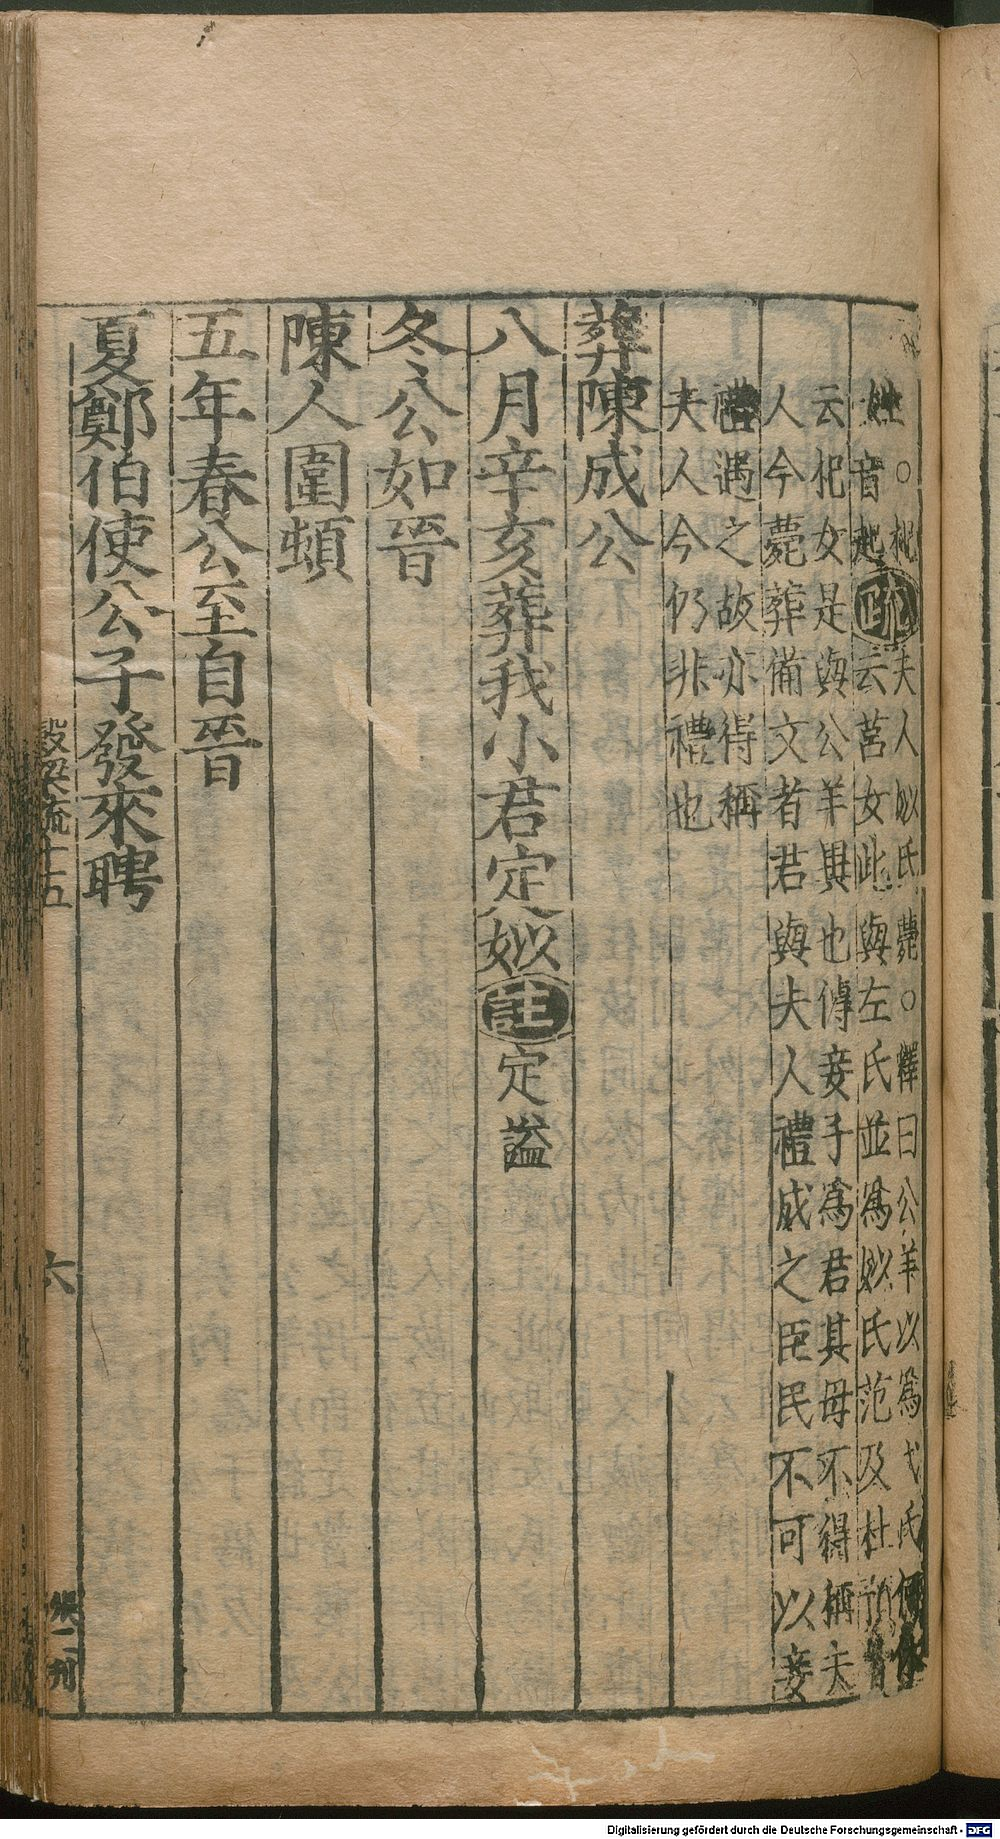 姓○杞
姓音起疏夫人姒氏薨○釋曰公羊以爲弋氏何休
云莒女此與左氏並爲姒氏范及杜預皆
云杞女是與公羊異也傳妾子爲君其母不得稱夫
人今薨葬備文者君與夫人禮成之臣民不可以妾
禮遇之故亦得稱
夫人今仍非禮也
葬陳成公
八月辛亥葬我小君定姒註定謚
冬公如晉
陳人圍頓
五年春公至自晉
夏鄭伯使公子發來聘
穀梁疏十五
六
張二刊
Digitalisierung gefördert durch die Deutsche Forschungsgemeinschaft - DFG